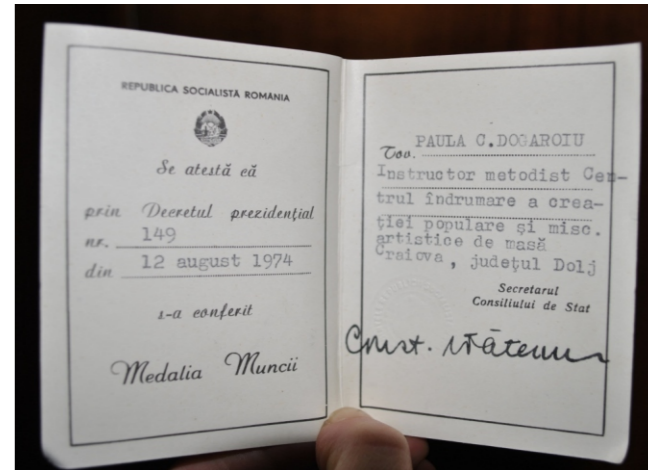 REPUBLICA SOCIALISTĂ ROMÂNIA
Se atestă că
prin Decretul prezidenţial
nr. 149
din 12 august 1974
s-a conferit
Medalia Muncii
Tov. PAULA C.DOGAROIU
Instructor metodist Cen-
trul îndrumare a crea-
ţiei populare şi misc.
artistice de masă
Craiova, judeţul Dolj
Secretarul
Consiliului de Stat
Const.